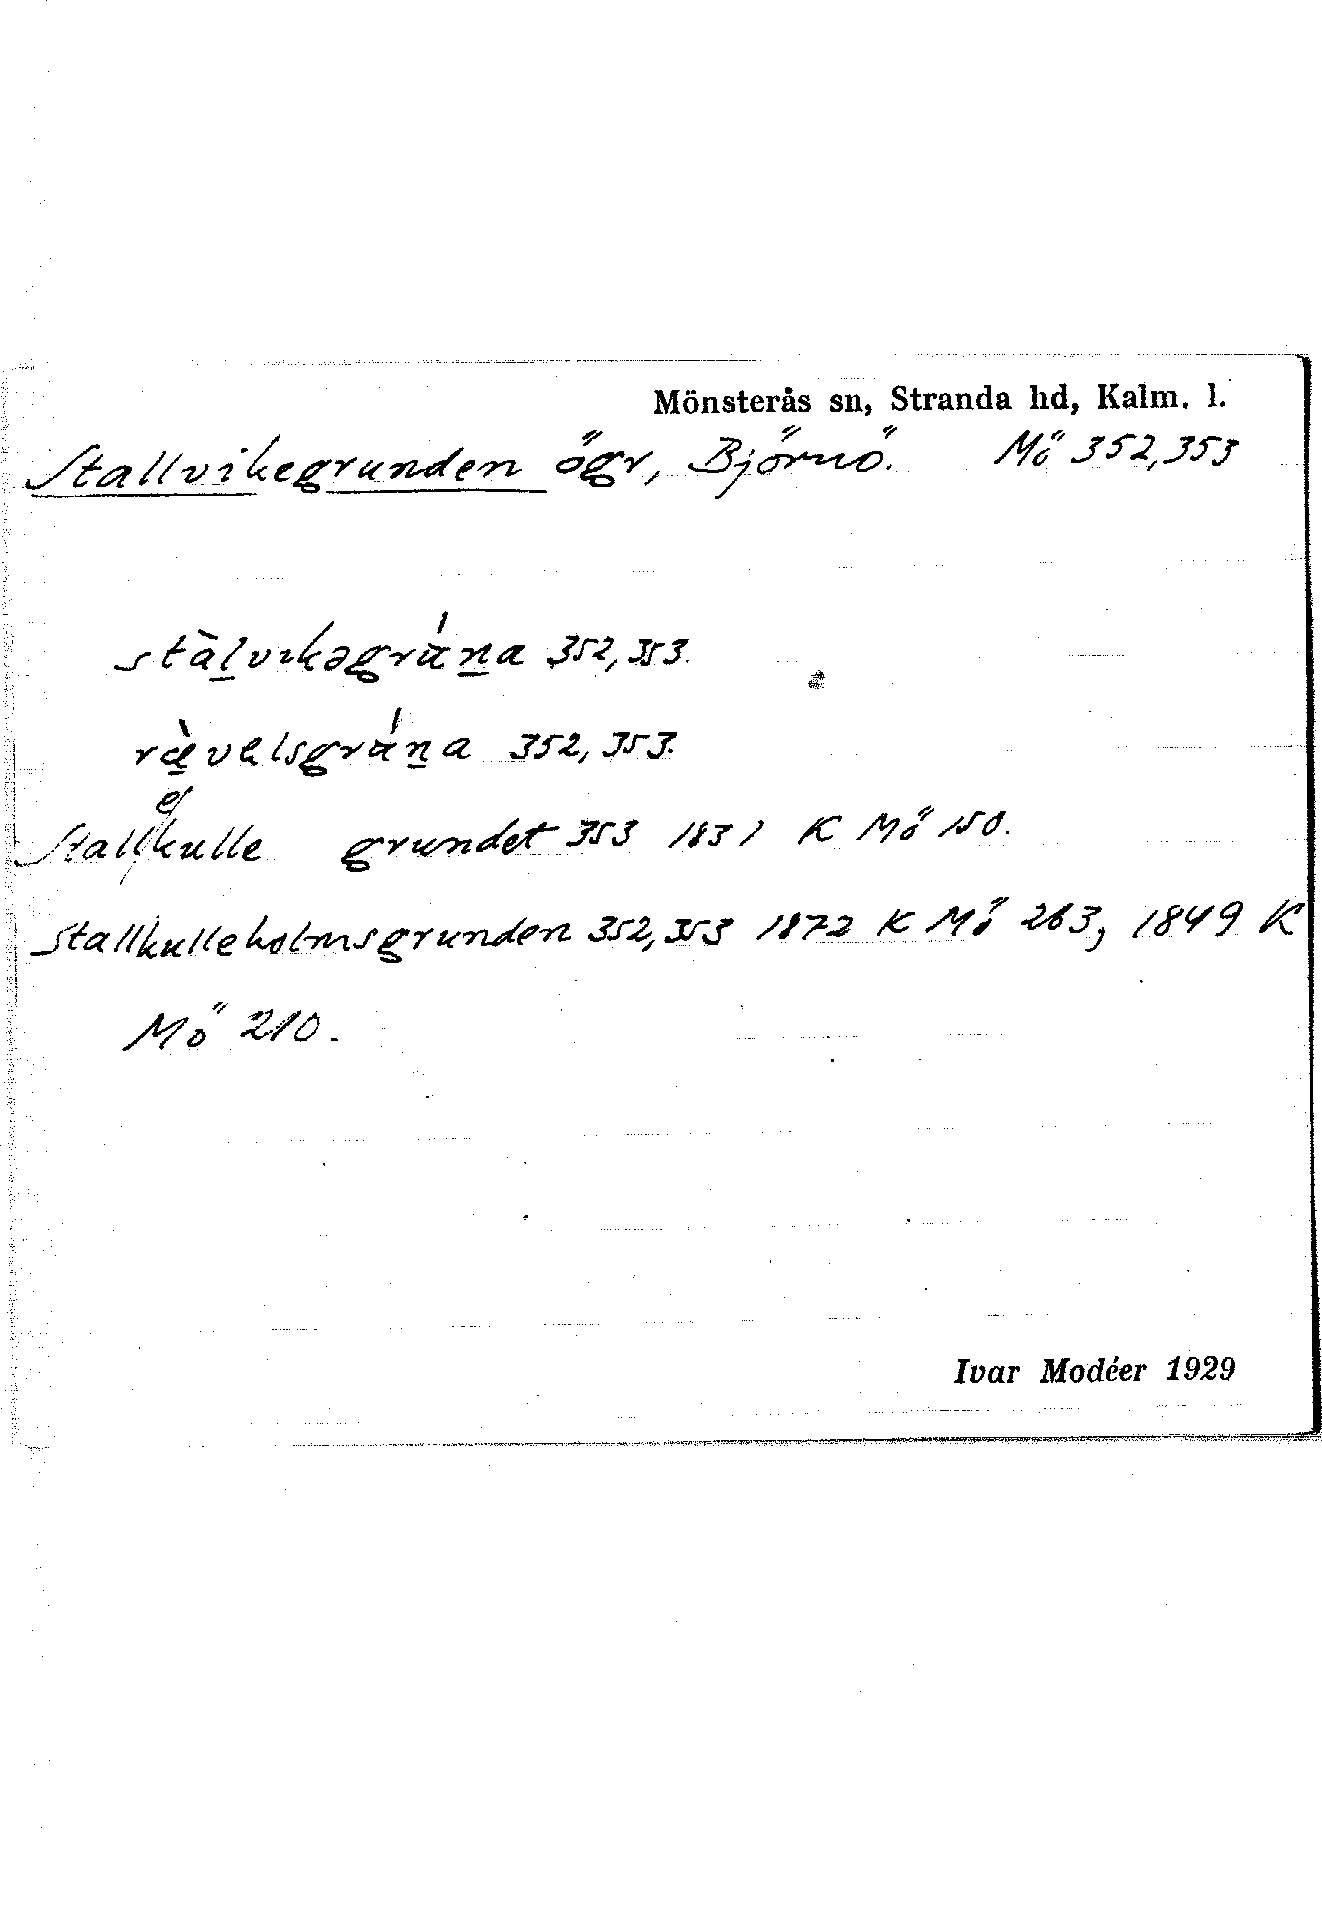 Mönsterås sn, Stranda hd, Kalm. l.
Stallvikegrunden ögr, Björnö. Mö 352,353
stàl̲vıkəgrán̲a 352,353.
ræ̲̀velsgrán̲a 352,353.
ej
Stallkulle grundet 353 1831 K Mö 150.
Stallkulleholmsgrunden 352,353 1872 K Mö 263, 1849 K
Mö 210.
Ivar Modéer 1929